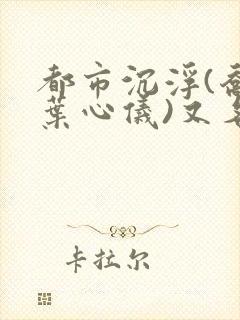 都市沉浮(
葉心儀)又
卡拉尔